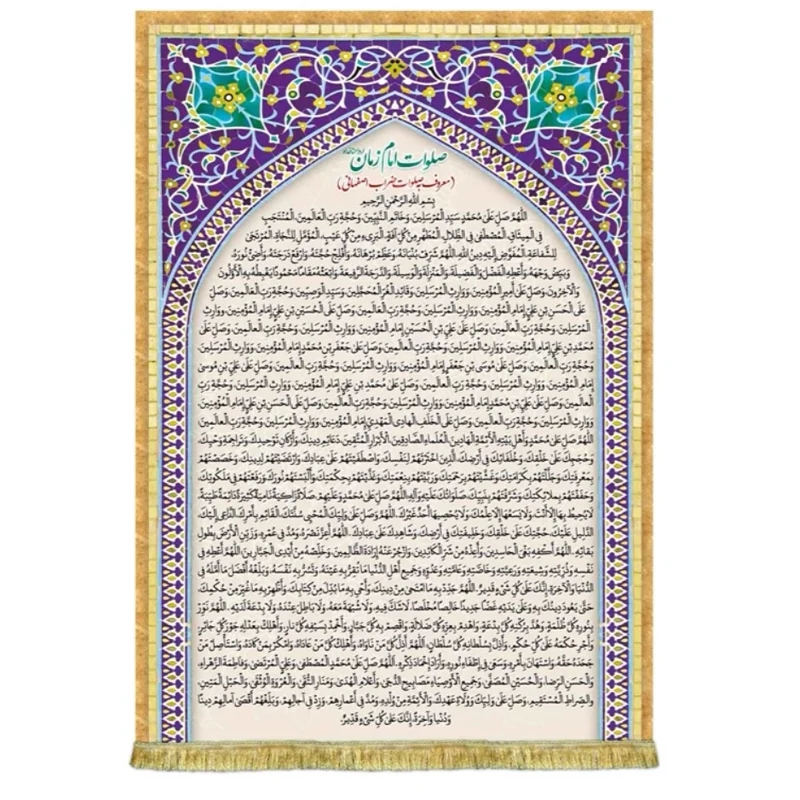 صلوات امام زمان
(معروف به صلوات ضراب اصفهانی)
بِسْمِ اللَّهِ الرَّحْمَنِ الرَّحِيمِ
اللَّهُمَّ صَلِّ عَلَى مُحَمَّدٍ سَيِّدِ الْمُرْسَلِينَ، وَخَاتَمِ النَّبِيِّينَ، وَحُجَّةِ رَبِّ الْعَالَمِينَ، الْمُنْتَجَبِ
فِي الْمِيثَاقِ، الْمُصْطَفَى فِي الظِّلَالِ، الْمُطَهَّرِ مِنْ كُلِّ آفَةٍ، الْبَرِيءِ مِنْ كُلِّ عَيْبٍ، الْمُؤَمَّلِ لِلنَّجَاةِ، الْمُرْتَجَى
لِلشَّفَاعَةِ، الْمُفَوَّضِ إِلَيْهِ دِينُ اللَّهِ، اللَّهُمَّ شَرِّفْ بُنْيَانَهُ، وَعَظِّمْ بُرْهَانَهُ، وَأَفْلِجْ حُجَّتَهُ، وَارْفَعْ دَرَجَتَهُ، وَأَضِئْ نُورَهُ،
وَبَيِّضْ وَجْهَهُ، وَأَعْطِهِ الْفَضْلَ وَالْفَضِيلَةَ، وَالْمَنْزِلَةَ وَالْوَسِيلَةَ، وَالدَّرَجَةَ الرَّفِيعَةَ، وَابْعَثْهُ مَقَامًا مَحْمُودًا، يَغْبِطُهُ بِهِ الْأَوَّلُونَ
وَالْآخِرُونَ، وَصَلِّ عَلَى أَمِيرِ الْمُؤْمِنِينَ، وَوَارِثِ الْمُرْسَلِينَ، وَقَائِدِ الْغُرِّ الْمُحَجَّلِينَ، وَسَيِّدِ الْوَصِيِّينَ، وَحُجَّةِ رَبِّ الْعَالَمِينَ، وَصَلِّ
عَلَى الْحَسَنِ بْنِ عَلِيٍّ إِمَامِ الْمُؤْمِنِينَ، وَوَارِثِ الْمُرْسَلِينَ، وَحُجَّةِ رَبِّ الْعَالَمِينَ، وَصَلِّ عَلَى الْحُسَيْنِ بْنِ عَلِيٍّ إِمَامِ الْمُؤْمِنِينَ، وَوَارِثِ
الْمُرْسَلِينَ، وَحُجَّةِ رَبِّ الْعَالَمِينَ، وَصَلِّ عَلَى عَلِيِّ بْنِ الْحُسَيْنِ إِمَامِ الْمُؤْمِنِينَ، وَوَارِثِ الْمُرْسَلِينَ، وَحُجَّةِ رَبِّ الْعَالَمِينَ، وَصَلِّ عَلَى
مُحَمَّدِ بْنِ عَلِيٍّ إِمَامِ الْمُؤْمِنِينَ، وَوَارِثِ الْمُرْسَلِينَ، وَحُجَّةِ رَبِّ الْعَالَمِينَ، وَصَلِّ عَلَى جَعْفَرِ بْنِ مُحَمَّدٍ إِمَامِ الْمُؤْمِنِينَ، وَوَارِثِ الْمُرْسَلِينَ،
وَحُجَّةِ رَبِّ الْعَالَمِينَ، وَصَلِّ عَلَى مُوسَى بْنِ جَعْفَرٍ إِمَامِ الْمُؤْمِنِينَ، وَوَارِثِ الْمُرْسَلِينَ، وَحُجَّةِ رَبِّ الْعَالَمِينَ، وَصَلِّ عَلَى عَلِيِّ بْنِ مُوسَى
إِمَامِ الْمُؤْمِنِينَ، وَوَارِثِ الْمُرْسَلِينَ، وَحُجَّةِ رَبِّ الْعَالَمِينَ، وَصَلِّ عَلَى مُحَمَّدِ بْنِ عَلِيٍّ إِمَامِ الْمُؤْمِنِينَ، وَوَارِثِ الْمُرْسَلِينَ، وَحُجَّةِ رَبِّ
الْعَالَمِينَ، وَصَلِّ عَلَى عَلِيِّ بْنِ مُحَمَّدٍ إِمَامِ الْمُؤْمِنِينَ، وَوَارِثِ الْمُرْسَلِينَ، وَحُجَّةِ رَبِّ الْعَالَمِينَ، وَصَلِّ عَلَى الْحَسَنِ بْنِ عَلِيٍّ إِمَامِ الْمُؤْمِنِينَ،
وَوَارِثِ الْمُرْسَلِينَ، وَحُجَّةِ رَبِّ الْعَالَمِينَ، وَصَلِّ عَلَى الْخَلَفِ الْهَادِي الْمَهْدِيِّ إِمَامِ الْمُؤْمِنِينَ، وَوَارِثِ الْمُرْسَلِينَ، وَحُجَّةِ رَبِّ الْعَالَمِينَ،
اللَّهُمَّ صَلِّ عَلَى مُحَمَّدٍ وَأَهْلِ بَيْتِهِ الْأَئِمَّةِ الْهَادِينَ، الْعُلَمَاءِ الصَّادِقِينَ، الْأَبْرَارِ الْمُتَّقِينَ، دَعَائِمِ دِينِكَ، وَأَرْكَانِ تَوْحِيدِكَ، وَتَرَاجِمَةِ وَحْيِكَ،
وَحُجَجِكَ عَلَى خَلْقِكَ، وَخُلَفَائِكَ فِي أَرْضِكَ، الَّذِينَ اخْتَرْتَهُمْ لِنَفْسِكَ، وَاصْطَفَيْتَهُمْ عَلَى عِبَادِكَ، وَارْتَضَيْتَهُمْ لِدِينِكَ، وَخَصَصْتَهُمْ
بِمَعْرِفَتِكَ، وَجَلَّلْتَهُمْ بِكَرَامَتِكَ، وَغَشَّيْتَهُمْ بِرَحْمَتِكَ، وَرَبَّيْتَهُمْ بِنِعْمَتِكَ، وَغَذَّيْتَهُمْ بِحِكْمَتِكَ، وَأَلْبَسْتَهُمْ نُورَكَ، وَرَفَعْتَهُمْ فِي مَلَكُوتِكَ،
وَحَفَفْتَهُمْ بِمَلَائِكَتِكَ، وَشَرَّفْتَهُمْ بِنَبِيِّكَ صَلَوَاتُكَ عَلَيْهِ وَآلِهِ، اللَّهُمَّ صَلِّ عَلَى مُحَمَّدٍ وَعَلَيْهِمْ، صَلَاةً زَاكِيَةً نَامِيَةً، كَثِيرَةً دَائِمَةً طَيِّبَةً،
لَا يُحِيطُ بِهَا إِلَّا أَنْتَ، وَلَا يَسَعُهَا إِلَّا عِلْمُكَ، وَلَا يُحْصِيهَا أَحَدٌ غَيْرُكَ، اللَّهُمَّ وَصَلِّ عَلَى وَلِيِّكَ الْمُحْيِي سُنَّتَكَ، الْقَائِمِ بِأَمْرِكَ، الدَّاعِي إِلَيْكَ،
الدَّلِيلِ عَلَيْكَ، حُجَّتِكَ عَلَى خَلْقِكَ، وَخَلِيفَتِكَ فِي أَرْضِكَ، وَشَاهِدِكَ عَلَى عِبَادِكَ، اللَّهُمَّ أَعِزَّ نَصْرَهُ، وَمُدَّ فِي عُمْرِهِ، وَزَيِّنِ الْأَرْضَ بِطُولِ
بَقَائِهِ، اللَّهُمَّ اكْفِهِ بَغْيَ الْحَاسِدِينَ، وَأَعِذْهُ مِنْ شَرِّ الْكَائِدِينَ، وَازْجُرْ عَنْهُ إِرَادَةَ الظَّالِمِينَ، وَخَلِّصْهُ مِنْ أَيْدِي الْجَبَّارِينَ، اللَّهُمَّ أَعْطِهِ فِي
نَفْسِهِ وَذُرِّيَّتِهِ، وَشِيعَتِهِ وَرَعِيَّتِهِ، وَخَاصَّتِهِ وَعَامَّتِهِ وَعَدُوِّهِ، وَجَمِيعِ أَهْلِ الدُّنْيَا مَا تُقِرُّ بِهِ عَيْنَهُ، وَتَسُرُّ بِهِ نَفْسَهُ، وَبَلِّغْهُ أَفْضَلَ مَا أَمَّلَهُ فِي
الدُّنْيَا وَالْآخِرَةِ، إِنَّكَ عَلَى كُلِّ شَيْءٍ قَدِيرٌ، اللَّهُمَّ جَدِّدْ بِهِ مَا امْتَحَى مِنْ دِينِكَ، وَأَحْيِ بِهِ مَا بُدِّلَ مِنْ كِتَابِكَ، وَأَظْهِرْ بِهِ مَا غُيِّرَ مِنْ حُكْمِكَ،
حَتَّى يَعُودَ دِينُكَ بِهِ وَعَلَى يَدَيْهِ غَضًّا جَدِيدًا، خَالِصًا مُخْلَصًا، لَا شَكَّ فِيهِ، وَلَا شُبْهَةَ مَعَهُ، وَلَا بَاطِلَ عِنْدَهُ، وَلَا بِدْعَةَ لَدَيْهِ، اللَّهُمَّ نَوِّرْ
بِنُورِهِ كُلَّ ظُلْمَةٍ، وَهُدَّ بِرُكْنِهِ كُلَّ بِدْعَةٍ، وَاهْدِمْ بِعِزِّهِ كُلَّ ضَلَالَةٍ، وَاقْصِمْ بِهِ كُلَّ جَبَّارٍ، وَأَخْمِدْ بِسَيْفِهِ كُلَّ نَارٍ، وَأَهْلِكْ بِعَدْلِهِ جَوْرَ كُلِّ جَائِرٍ،
وَأَجْرِ حُكْمَهُ عَلَى كُلِّ حُكْمٍ، وَأَذِلَّ بِسُلْطَانِهِ كُلَّ سُلْطَانٍ، اللَّهُمَّ أَذِلَّ كُلَّ مَنْ نَاوَاهُ، وَأَهْلِكْ كُلَّ مَنْ عَادَاهُ، وَامْكُرْ بِمَنْ كَادَهُ، وَاسْتَأْصِلْ مَنْ
جَحَدَهُ حَقَّهُ، وَاسْتَهَانَ بِأَمْرِهِ، وَسَعَى فِي إِطْفَاءِ نُورِهِ، وَأَرَادَ إِخْمَادَ ذِكْرِهِ، اللَّهُمَّ صَلِّ عَلَى مُحَمَّدٍ الْمُصْطَفَى، وَعَلِيٍّ الْمُرْتَضَى، وَفَاطِمَةَ الزَّهْرَاءِ،
وَالْحَسَنِ الرِّضَا، وَالْحُسَيْنِ الْمُصَفَّى، وَجَمِيعِ الْأَوْصِيَاءِ، مَصَابِيحِ الدُّجَى، وَأَعْلَامِ الْهُدَى، وَمَنَارِ التُّقَى، وَالْعُرْوَةِ الْوُثْقَى، وَالْحَبْلِ الْمَتِينِ،
وَالصِّرَاطِ الْمُسْتَقِيمِ، وَصَلِّ عَلَى وَلِيِّكَ وَوُلَاةِ عَهْدِكَ، وَالْأَئِمَّةِ مِنْ وُلْدِهِ، وَمُدَّ فِي أَعْمَارِهِمْ، وَزِدْ فِي آجَالِهِمْ، وَبَلِّغْهُمْ أَقْصَى آمَالِهِمْ دِينًا
وَدُنْيَا وَآخِرَةً، إِنَّكَ عَلَى كُلِّ شَيْءٍ قَدِيرٌ.